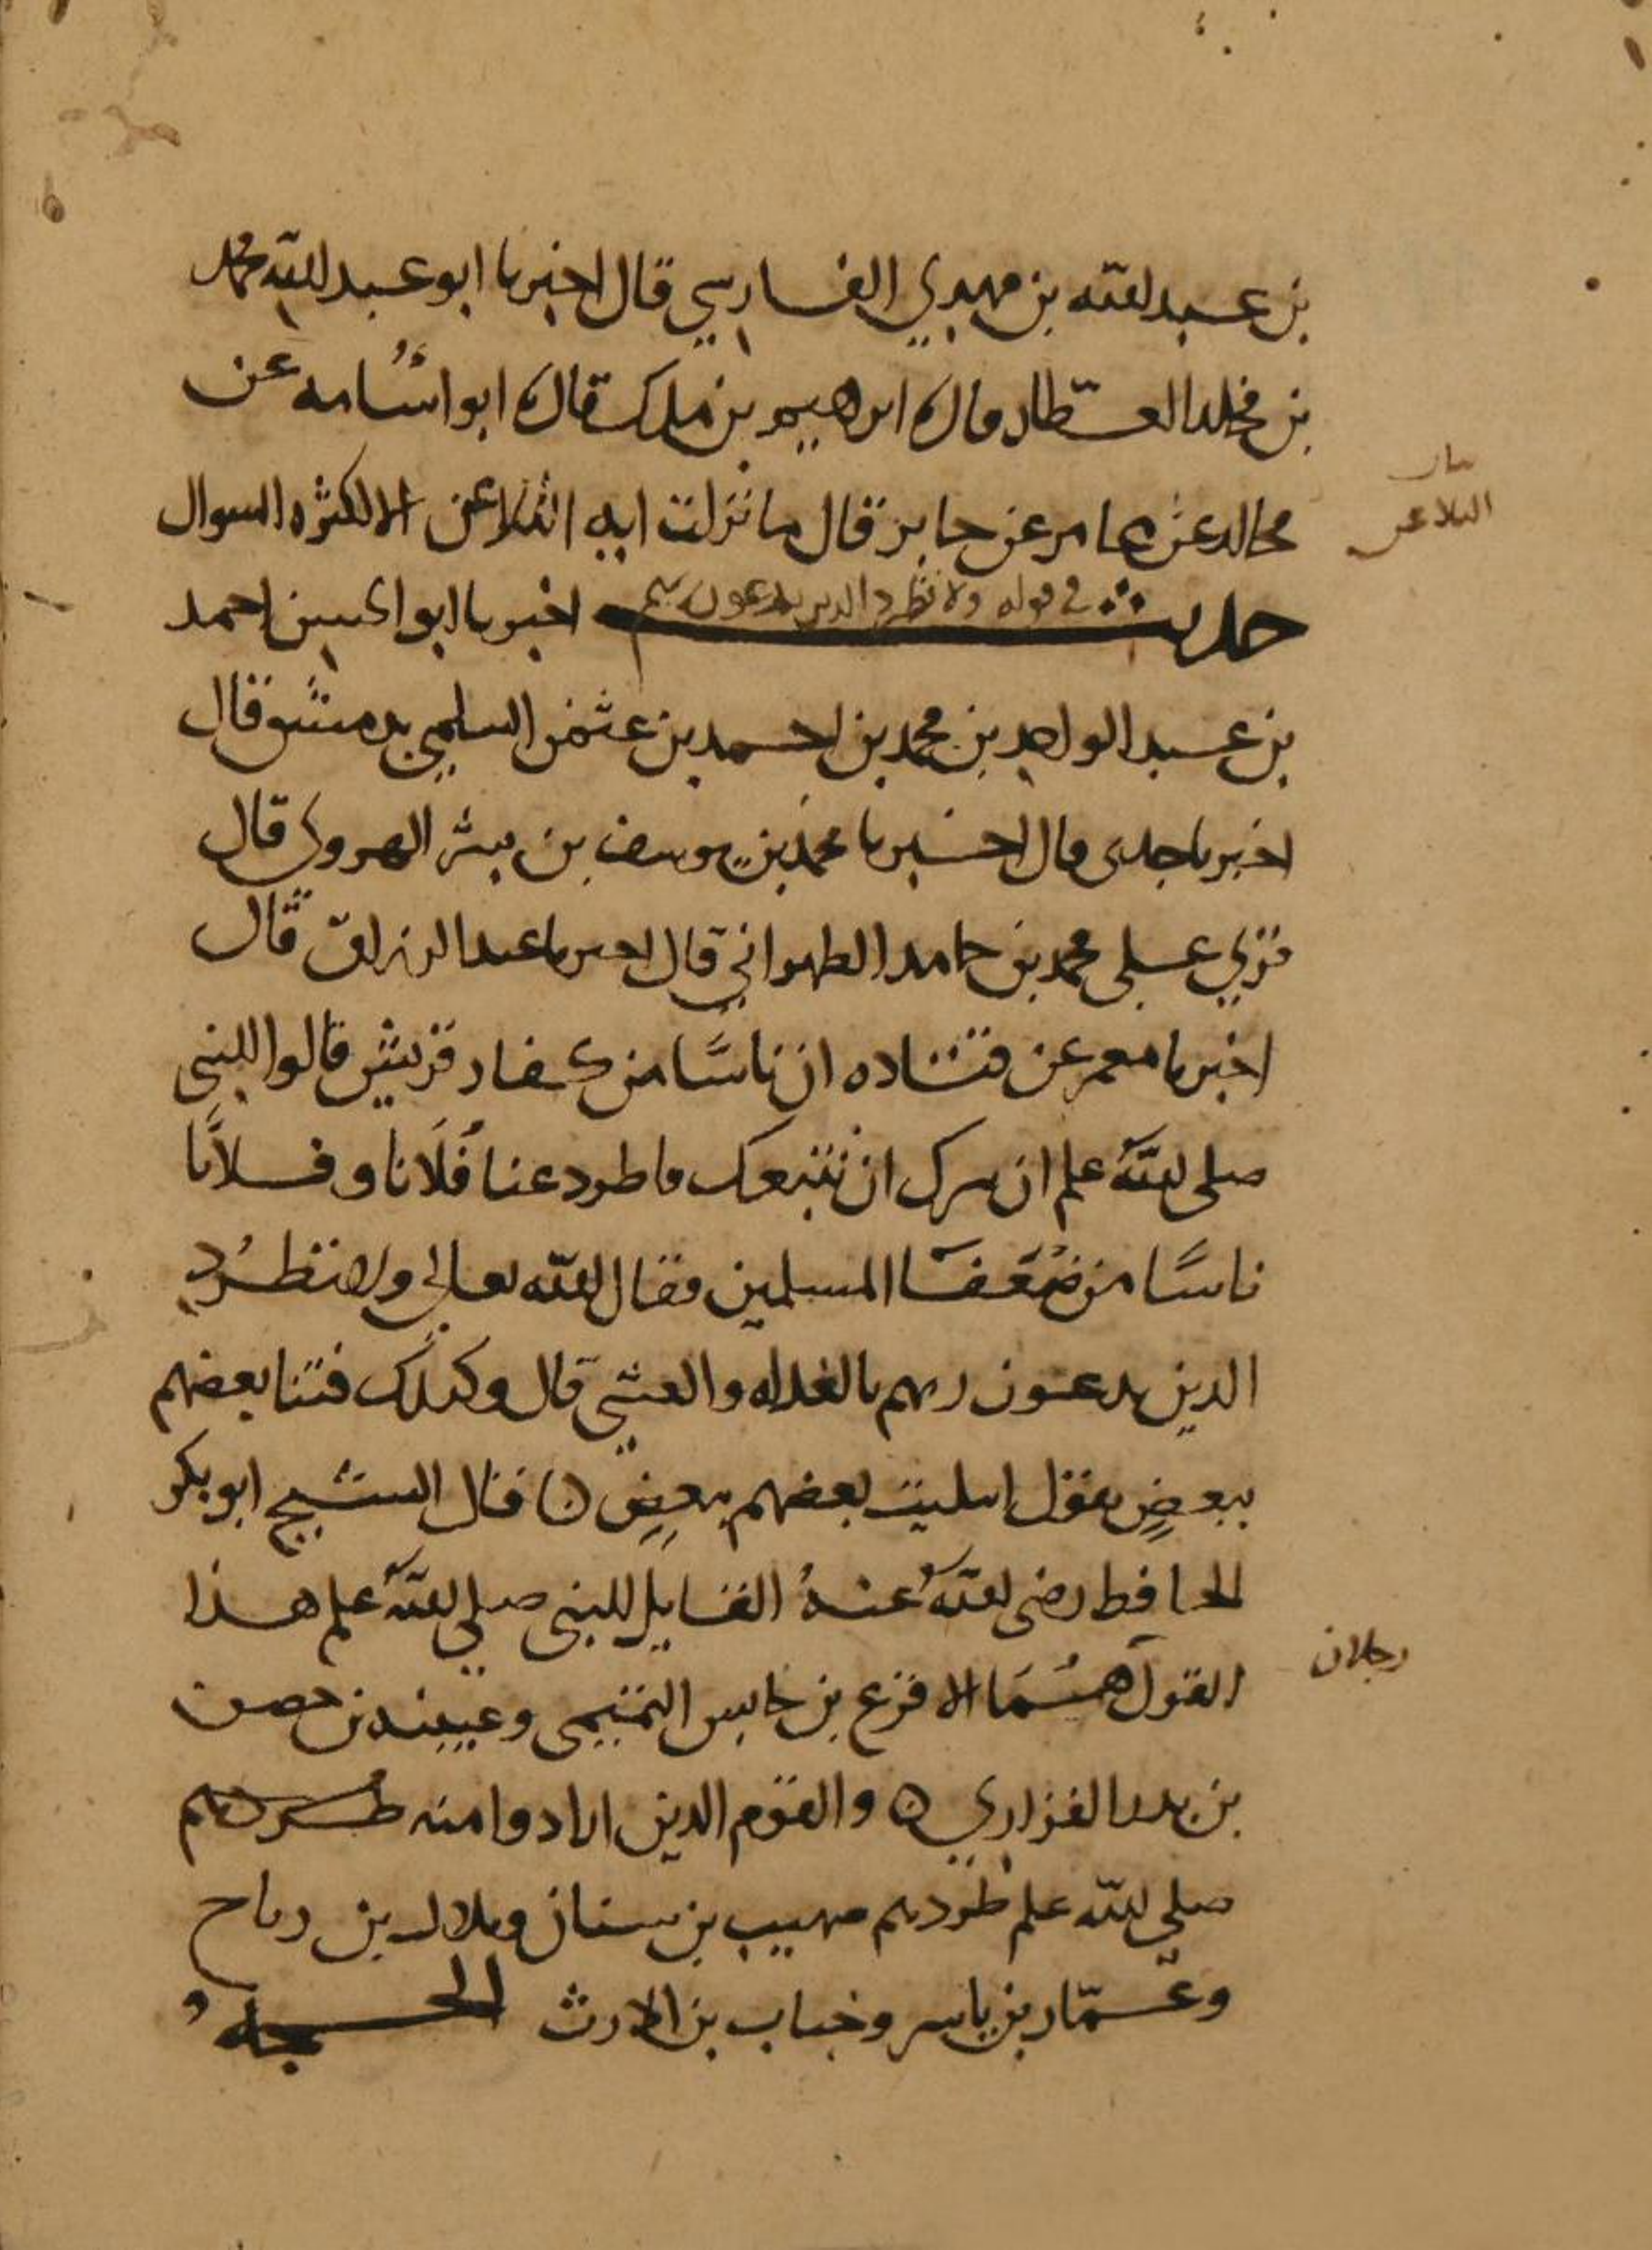 بن عبد الله بن مهدي الفارسي قال اخبرنا ابو عبد الله محمد
بن مخلد العطار قال نا ابرهيم بن ملك قال نا ابو اسامه عن
مجالد عن عامر عن جابر قال ما نزلت ايه التلاعن الا لكثره السوال
التلاعن
حديث في قوله ولا تطرد الذين يدعون ربهم اخبرنا ابو الحسين احمد
بن عبد الواحد بن محمد بن احمد بن عثمن السلمي بدمشق قال
اخبرنا جدي قال اخبرنا محمد بن يوسف بن بشر الهروي قال
قري على محمد بن حامد الطهراني قال اخبرنا عبد الرزاق قال
اخبرنا معمر عن قتاده ان ناسًا من كفار قريش قالوا للنبي
صلى الله علم ان سرك ان نتبعك فاطرد عنا فُلَانا وفلانًا
ناسًا من ضُعَفَا المسلمين فقال الله تعالى ولا تطرُد
الذين يدعون ربهم بالغداه والعشي قال وكذلك فتنا بعضهم
ببعضٍ يقول ابتليت بعضهم ببعضٍ ن فقال الشيخ ابو بكر
الحافظ رضى الله عنهُ القايل للنبي صلى الله علم هذا
القول هُمَا الاقرع بن حابس التميمي وعيينه بن حصن
رجلان
بن بدر الفزاري ه والقوم الذين ارادوا منه طردهم
صلى الله علم طردهم صهيب بن سنان وبلال بن رباح
وعمّار بن ياسر وخباب بن الارث